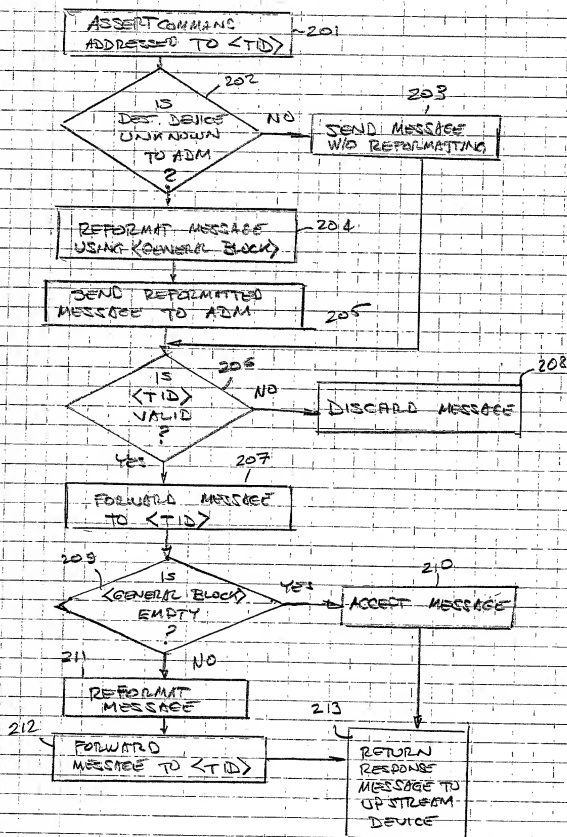 ASSERT COMMAND
ADDRESSED TO <TID>
201
202
IS
DEST. DEVICE
UNKNOWN
TO ADM
?
NO
203
SEND MESSAGE
W/O REFORMATTING
REFORMAT MESSAGE
USING <GENERAL BLOCK>
204
SEND REFORMATTED
MESSAGE TO ADM
205
206
IS
<TID>
VALID
?
NO
208
DISCARD MESSAGE
YES
207
FORWARD MESSAGE
TO <TID>
209
IS
<GENERAL BLOCK>
EMPTY
?
YES
210
ACCEPT MESSAGE
211
NO
REFORMAT
MESSAGE
212
FORWARD
MESSAGE TO <TID>
213
RETURN
RESPONSE
MESSAGE TO
UPSTREAM
DEVICE